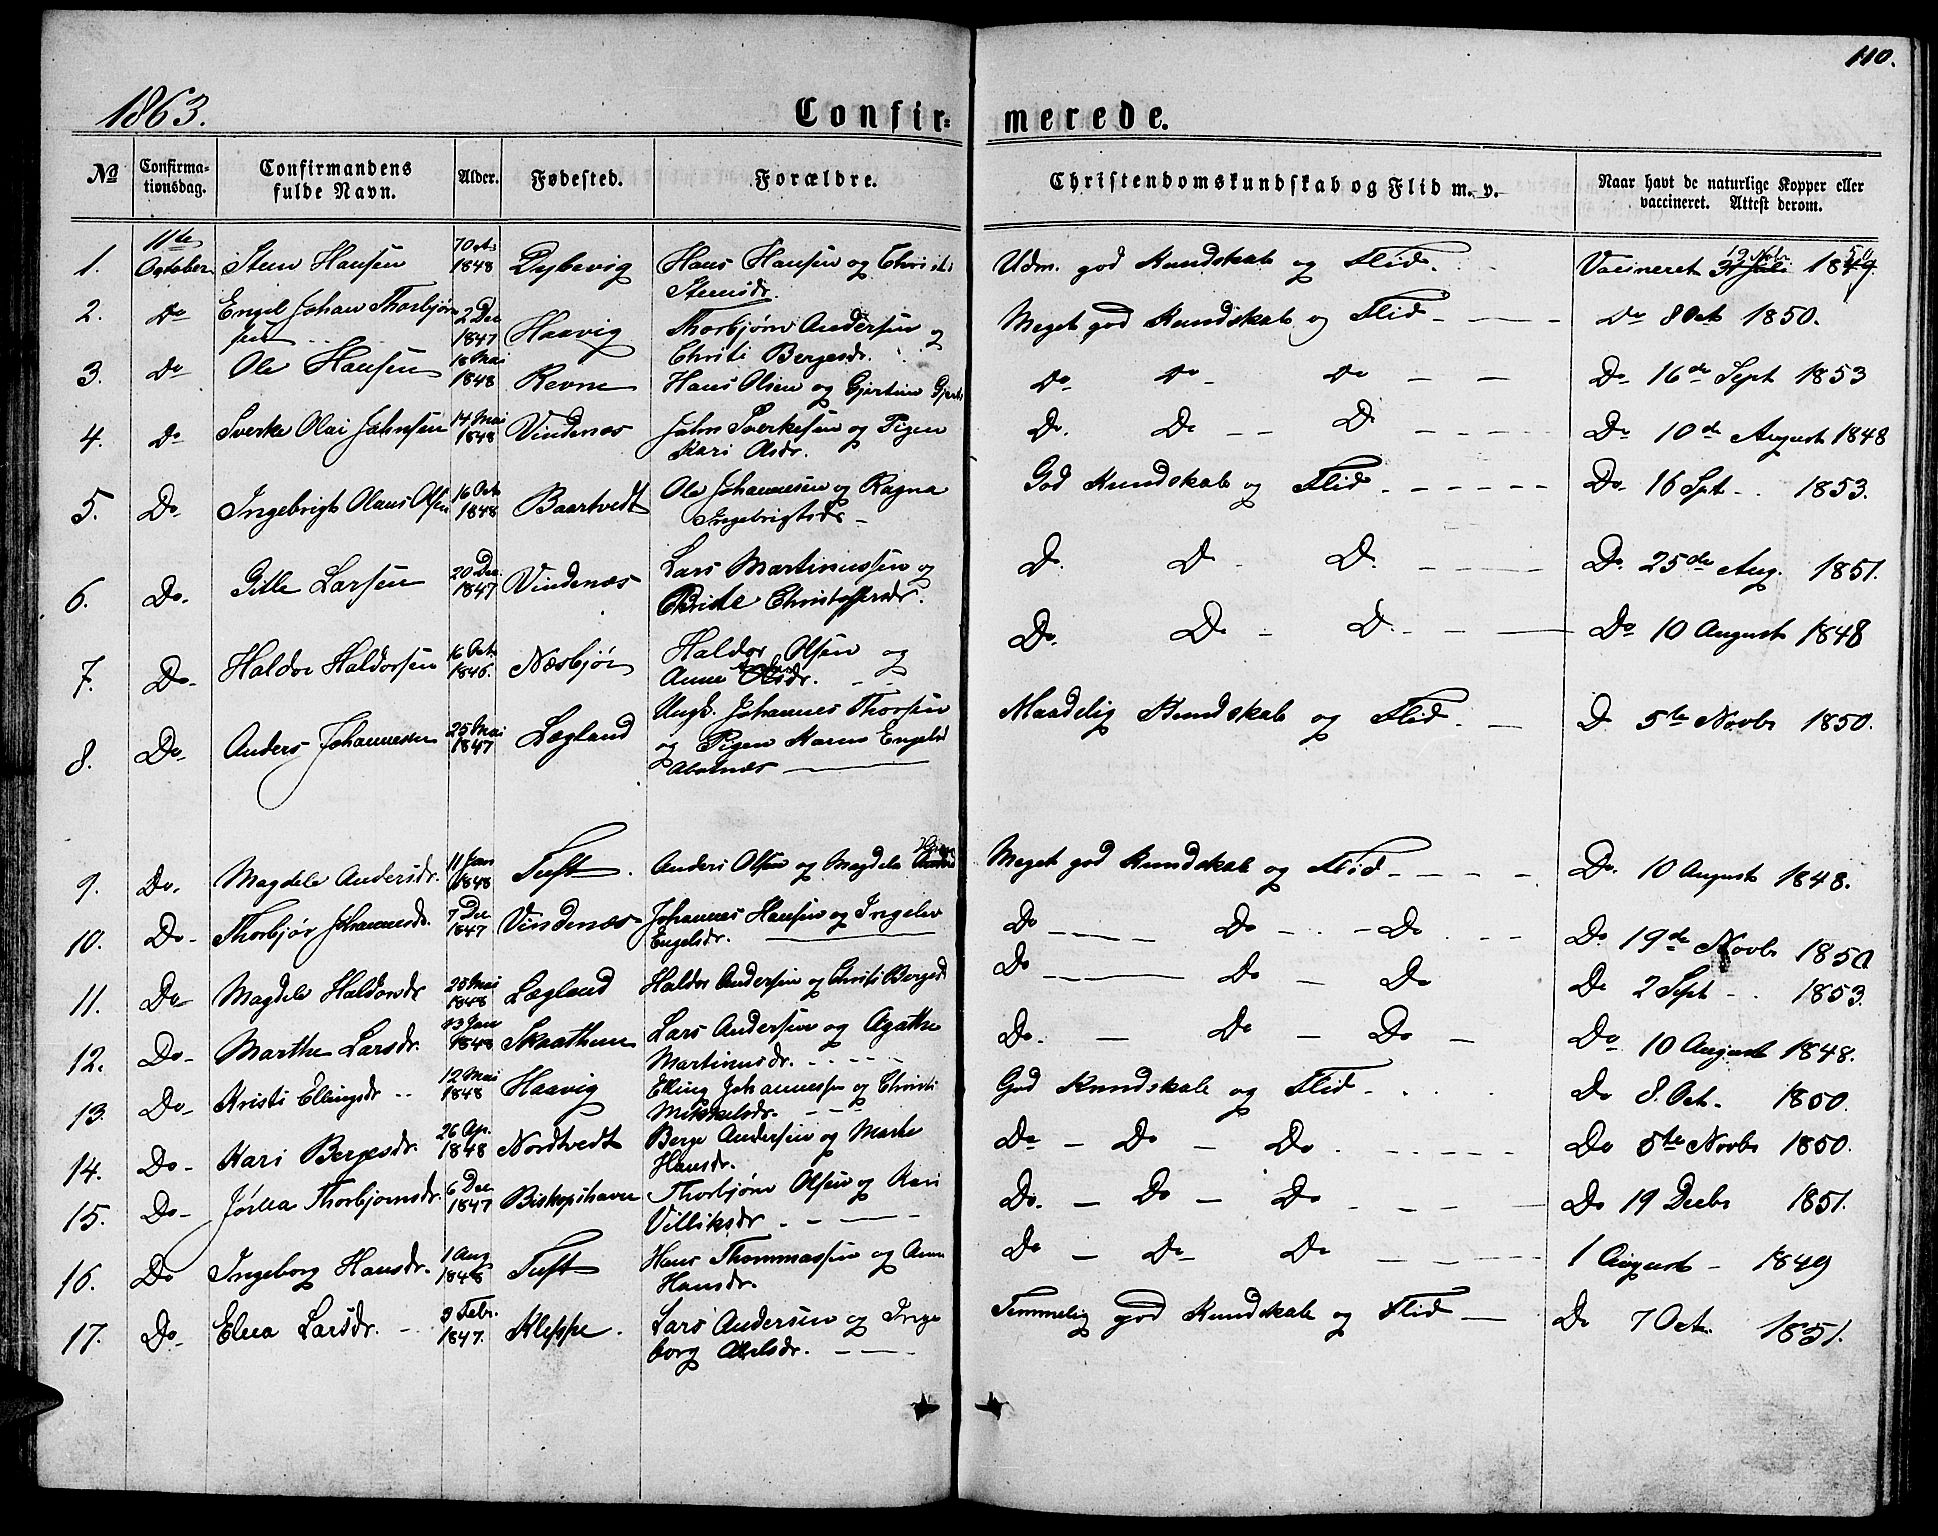 110.
1863.
Confirmerede.
No Confirmationsdag. Confirmandens fulde Navn. Alder. Fødested. Forældre. Christendomskundskab og Flid m. v. Naar havt de naturlige Kopper eller vaccineret. Attest derom.
1. 11te October Steen Hansen 7 Oct 1848 Dybevig Hans Hansen og Christi Steensdr. Udm. god Kundskab og Flid. Vacineret 19 Nobr 1850
2. Do Engel Johan Thorbjørnsen 2 Dec 1847 Haavig Thorbjørn Andersen og Christi Bergesdr. Meget god Kundskab og Flid Do 8 Oct 1850.
3. Do Ole Hansen 18 Mai 1848 Revne Hans Olsen og Gjertine Do Do Do Do 16de Sept 1853
4. Do Sverke Olai Johnsen 14 Mai 1848 Vindenæs John Sverkesen og Pigen Kari Olsdr. Do. Do Do Do 10de August 1848
5. Do Ingebrigt Olaus Olsen 16 Oct 1848 Baartvedt Ole Johannesen og Ragna Ingebrigtsdr God Kundskab og Flid Do 16 Spt 1853.
6. Do. Gitle Larsen 20 Dec. 1847 Vindenæs Lars Martinussen og Christoffersdr. Do. Do. Do. Do. 25de Aug. 1851.
7. Do Haldor Haldorsen 16 Oct 1846. Næsbjør Haldor Olsen og Anne Do. Do Do Do 10 August 1848
8. Do Anders Johannessen 25 Mai 1847 Lægland Ungk. Johannes Thorsen og Pigen Karen Engelsd Maadelig Kundskab og Flid Do 5te Novbr 1850.
9. Do. Magdele Andersdr. 11 Jan 1848 Tuft Anders Olsen og Magdele Meget god Kundskab og Flid Do. 10 August 1848.
10. Do Thorbjør Johannesdr. 7 Dec 1847 Vindenæs Johannes Hansen og Ingelev Engelsdr. Do Do Do Do 19de Novbr 1850
11. Do Magdele Haldorsdr 25 Mai 1848 Lægland Haldor Andersen og Christi Bergesd Do Do Do Do 2 Sept 1853.
12. Do Marthe Larsdr. 13 Jan 1848 Skaathun Lars Andersen og Agathe Martinusdr. Do. Do Do Do 10 August 1848.
13. Do Kristi Ellingsdr 12 Mai 1848 Haavig Elling Johannessen og Christi Mikkelsdr. God Kundskab og Flid Do 8. Oct. 1850.
14. Do Kari Bergesdr. 26 Ap. 1848 Nordtvedt Berge Andersen og Marte Hansdr. Do Do Do Do 5te Novbr 1850.
15. Do Jørlea Thorbjørnsdr. 6 Dec 1847 Biskopshavn Thorbjørn Olsen og Kari Villiksdr Do. Do Do Do 19 Decbr 1851.
16. Do Ingeborg Hansdr. 1 Aug 1848 Tuft Hans Thommassen og Anna Hansdr. Do Do Do 1 August 1849
17. Do Elena Larsdr. 3 Febr. 1847. Kleppe. Lars Andersen og Ingeborg Axelsdr. Temmelig god Kundskab og Flid Do 7 Oct. 1851.